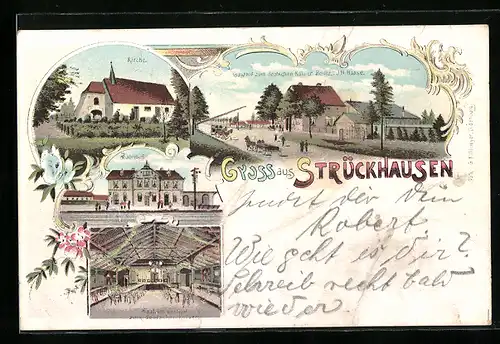 Kirche.
Gasthof zum deutschen Kaiser
Bahnhof
GRUSS aus STRÜCKHAUSEN
sendet dir dein
Robert.
Wie geht es dir?
Schreib recht bald
wieder